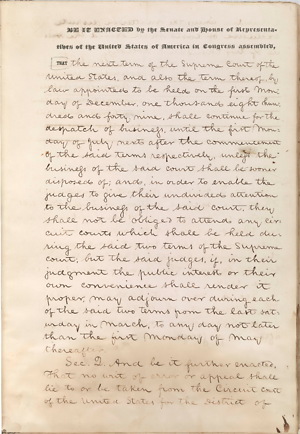 BE IT ENACTED by the Senate and House of Representa-
tives of the United States of America in Congress assembled,
THAT the next term of the Supreme Court of the
United States, and also the term thereof, by
law appointed to be held on the first Mon-
day of December, one thousand eight hun-
dred and forty nine, shall continue for the
despatch of business, until the first Mon-
day of July next after the commencement
of the said terms respectively, unless the
business of the said court shall be sooner
disposed of; and, in order to enable the
judges to give their undivided attention
to the business of the said court, they
shall not be obliged to attend any cir-
cuit courts which shall be held du-
ring the said two terms of the Supreme
court; but the said judges, if, in their
judgment the public interest or their
own convenience shall render it
proper, may adjourn over during each
of the said two terms from the last sat-
urday in March, to any day not later
than the first Monday of May
thereafter.
Sec. 2. And be it further enacted,
That no writ of error or appeal shall
lie to or be taken from the Circuit Court
of the United States for the District of